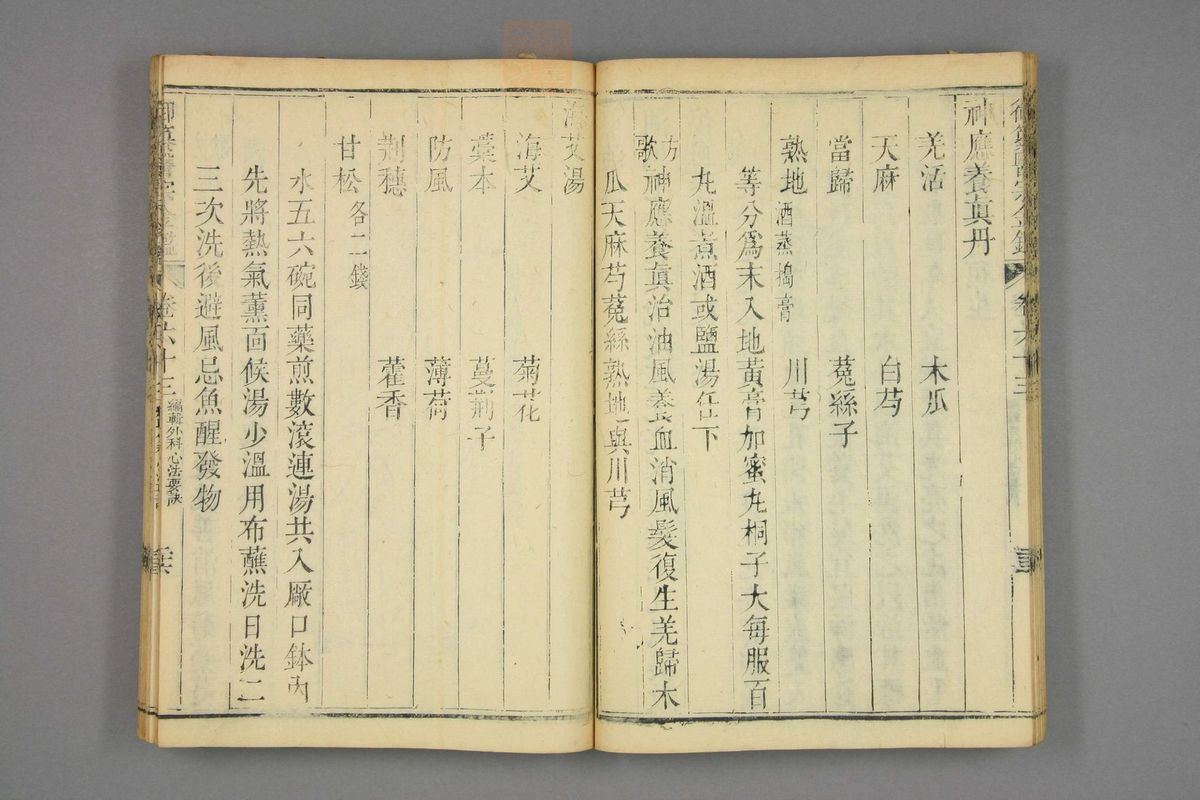 御纂醫宗金鑑 卷六十三
神應養眞丹
羌活 木瓜
天麻 白芍
當歸 菟絲子
熟地 酒蒸搗膏 川芎
等分爲末入地黃膏加蜜丸桐子大每服百
丸溫煮酒或鹽湯任下
方歌 神應養眞治油風養血消風髮復生羌歸木
瓜天麻芍菟絲熟地與川芎
海艾湯
海艾 菊花
藁本 蔓荆子
防風 薄荷
荆穗 藿香
甘松 各二錢
水五六碗同藥煎數滾連湯共入厰口鉢內
先將熱氣薰面候湯少溫用布蘸洗日洗二
三次洗後避風忌魚醒發物
御纂醫宗金鑑 卷六十三 編輯外科心法要訣